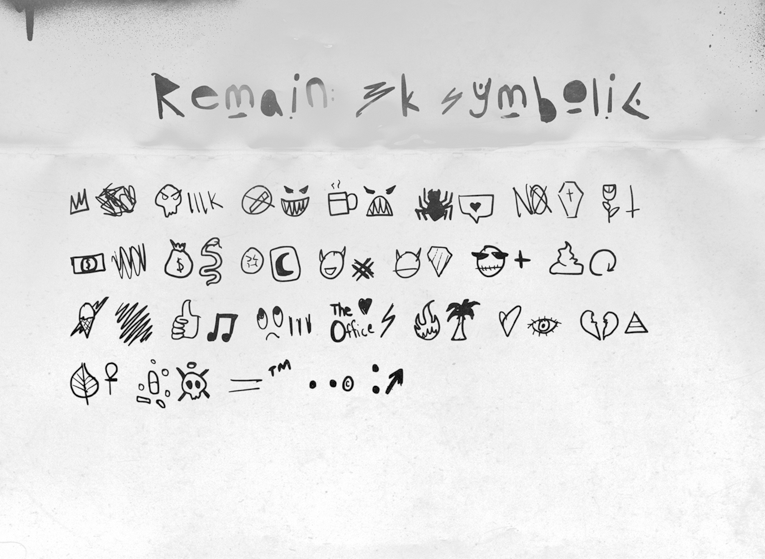 Remain: 3k symbolic
NO
$
The
Office
TM
©